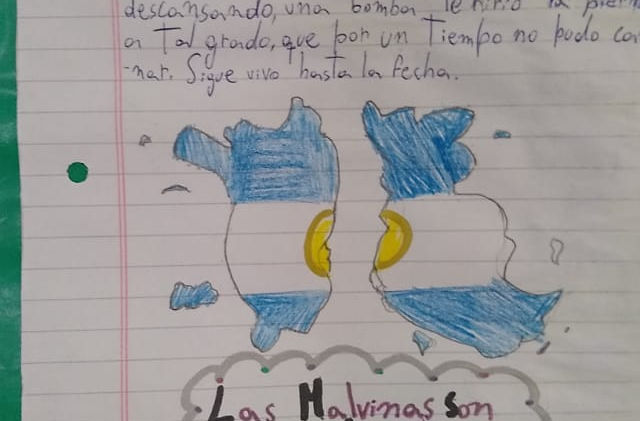 descansando, una bomba le hirio la pierna
a tal grado, que por un tiempo no pudo ca
-nar. Sigue vivo hasta la fecha.
Las Malvinas son